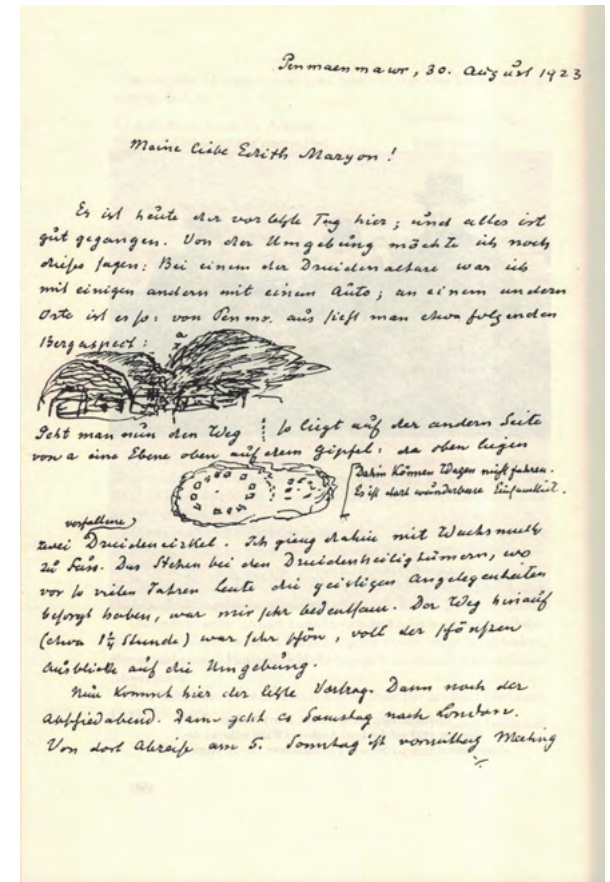 Penmaenmawr, 30. August 1923
Meine liebe Edith Maryon!
Es ist heute der vorletzte Tag hier; und alles ist
gut gegangen. Von der Umgebung möchte ich noch
dieses sagen: Bei einem der Druidenaltäre war ich
mit einigen andern mit einem Auto; an einem andern
Orte ist es so: von Penm. aus sieht man etwa folgenden
Bergaspect:
a
x
Geht man nun den Weg so liegt auf der andern Seite
von a eine Ebene oben auf dem Gipfel: da oben liegen
Dahin können Wagen nicht fahren.
Es ist dort wunderbare Einsamkeit.
verfallene
zwei Druidencirkel. Ich gieng dahin mit Wachsmuth
zu Fuss. Das Stehen bei den Druidenheiligthümern, wo
vor so vielen Jahren Leute die geistigen Angelegenheiten
besorgt haben, war mir sehr bedeutsam. Der Weg hinauf
(etwa 1¼ Stunde) war sehr schön, voll der schönsten
Ausblicke auf die Umgebung.
Nun kommt hier der letzte Vortrag. Dann noch der
Abschiedabend. Dann geht es Samstag nach London.
Von dort Abreise am 5. Sonntag ist vormittag Meeting
./.